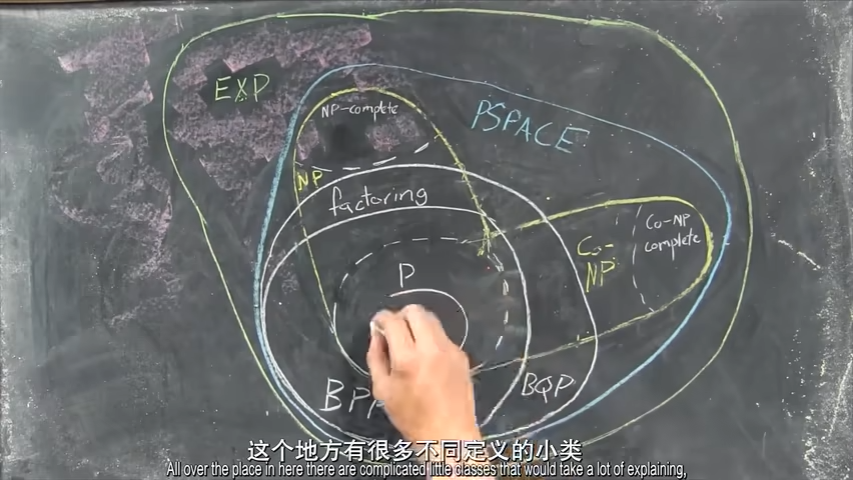 EXP
NP-complete
PSPACE
NP
factoring
Co-NP
complete
Co-
NP
P
BPP
BQP
这个地方有很多不同定义的小类
All over the place in here there are complicated little classes that would take a lot of explaining,